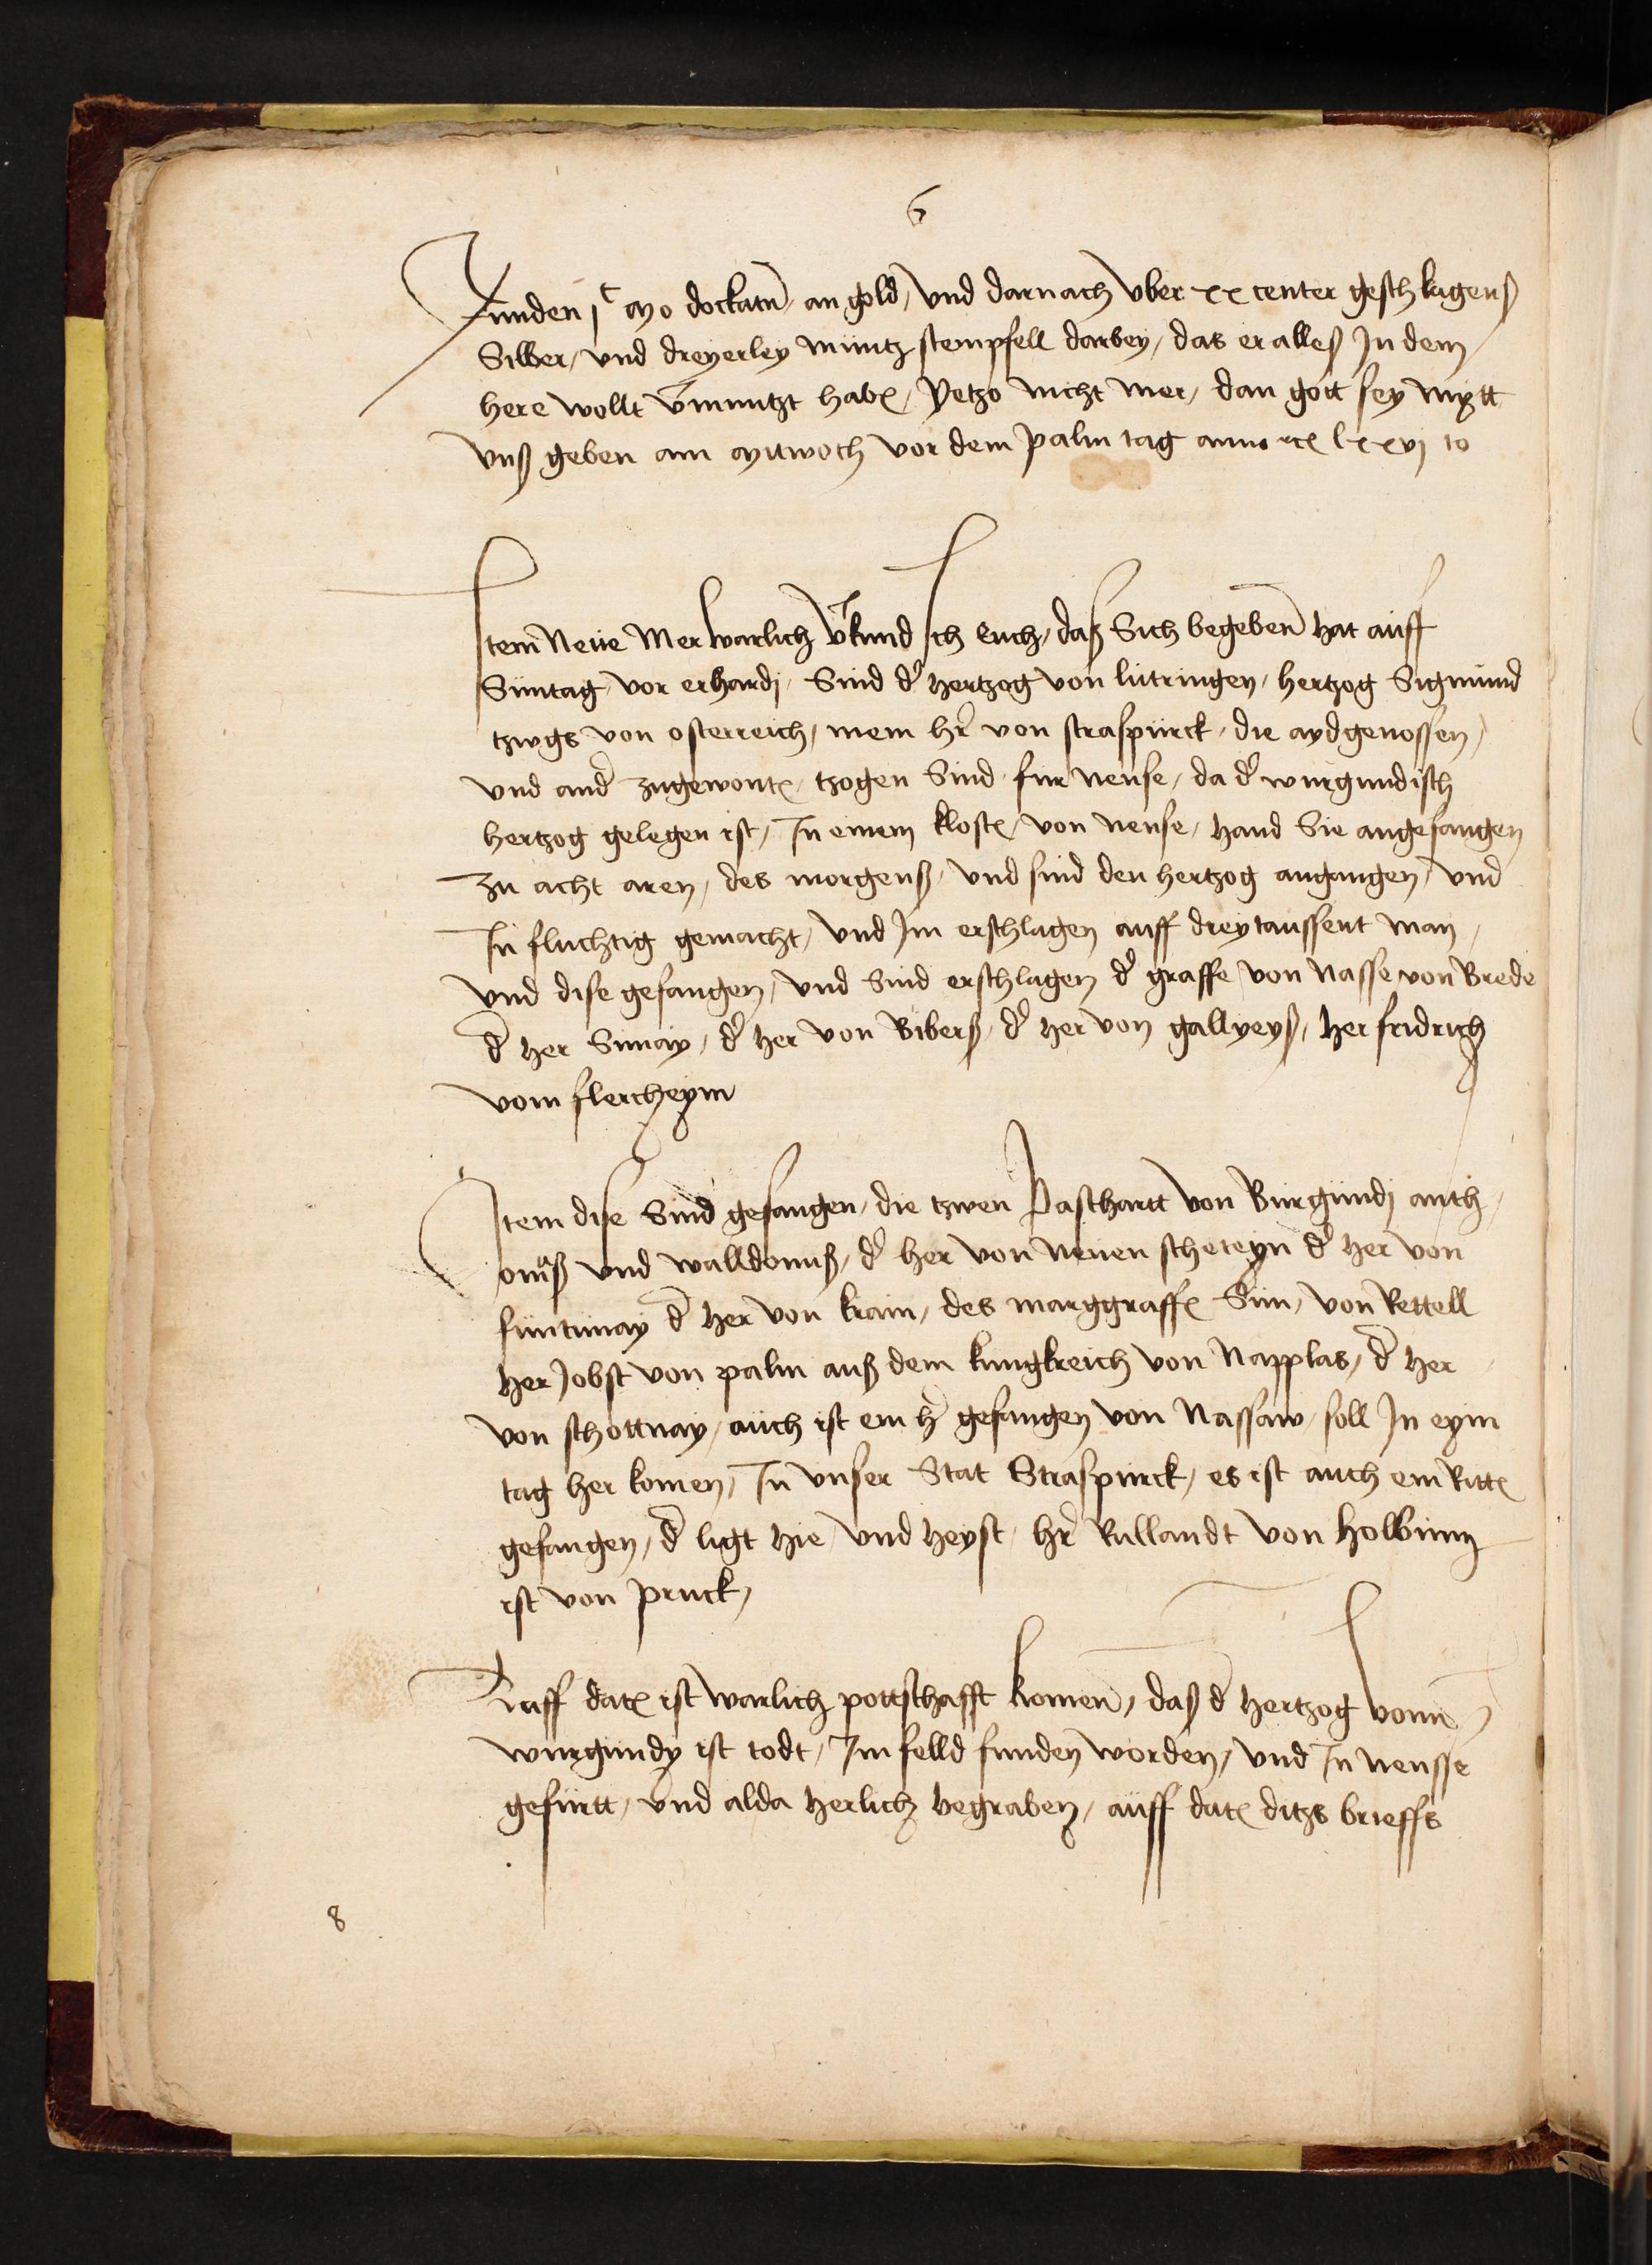 6
Funden jc Mo dockatn̄ an gold / und darnach uber xx center geschlagenß
Silber / und dreyerley müntz stempfell darbey / das er alleß In dem
here wollt v̄muntzt habn / Yetzo nicht mer / dan gott sey mytt
unß geben am Mitwoch vor dem palm tag anno rc lxxvj to
Item Neue Mer warlich v̄kund Ich euch / daß Sich begeben hat auff
Suntag vor erhardj / Sind d' hertzog von lutringen / hertzog Sigmund
tzwgs von osterreich / mein hr̄ von straspurck / die aydgenossen /
und and' zugewontn / tzogen Sind fur nense / da d' wurgundisch
hertzog gelegen ist / In einem klostr / von nense / hand Sie angefangen
zu acht aren / des morgenß / und sind den hertzog angangen / und
In fluchtig gemacht / und Im erschlagen auff dreytaussent man /
und dise gefangen / und Sind erschlagen d' graffe von Nasse von Brede
d' her Simay / d' her von Biberß / d' her von gallyeyß / her fridrich
vom flercheym
Item dise Sind gefangen / die tzwen Paschartt von Burgundj anth /
oniß und walldonuß / d' her von neuen scheteyn d' her von
funtunay d' her von krain / des marggraffn Sun / von Rettell
her Jobst von palm auß dem kungkreich von Napplas / d' her
von schottnay / auch ist ein hr̄ gefangen von Nassaw / soll In eym
tag her komen / In unser Stat Straspurck / es ist auch ein Rittr
gefangen / d' ligt hie und heyst hr̄ Rullandt von Holbinn
ist von pruck /
Auff datn ist warlich pottschafft komen / daß d' hertzog vonn
wurgundy ist todt / Im felld funden worden / und In nensse
gefurtt / und alda herlich begraben / auff datn ditzs brieffs
8